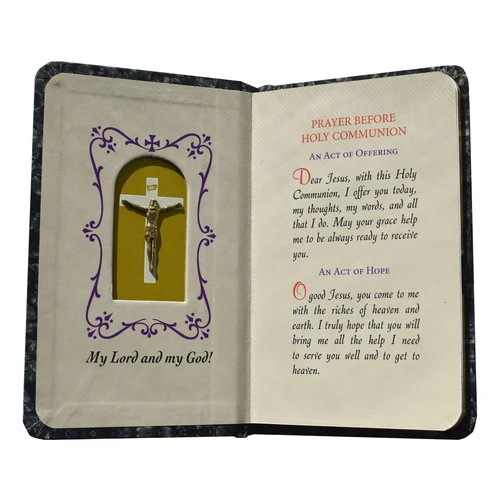 My Lord and my God!
PRAYER BEFORE
HOLY COMMUNION
AN ACT OF OFFERING
Dear Jesus, with this Holy
Communion, I offer you today,
my thoughts, my words, and all
that I do. May your grace help
me to be always ready to receive
you.
AN ACT OF HOPE
O good Jesus, you come to me
with the riches of heaven and
earth. I truly hope that you will
bring me all the help I need
to serve you well and to get to
heaven.